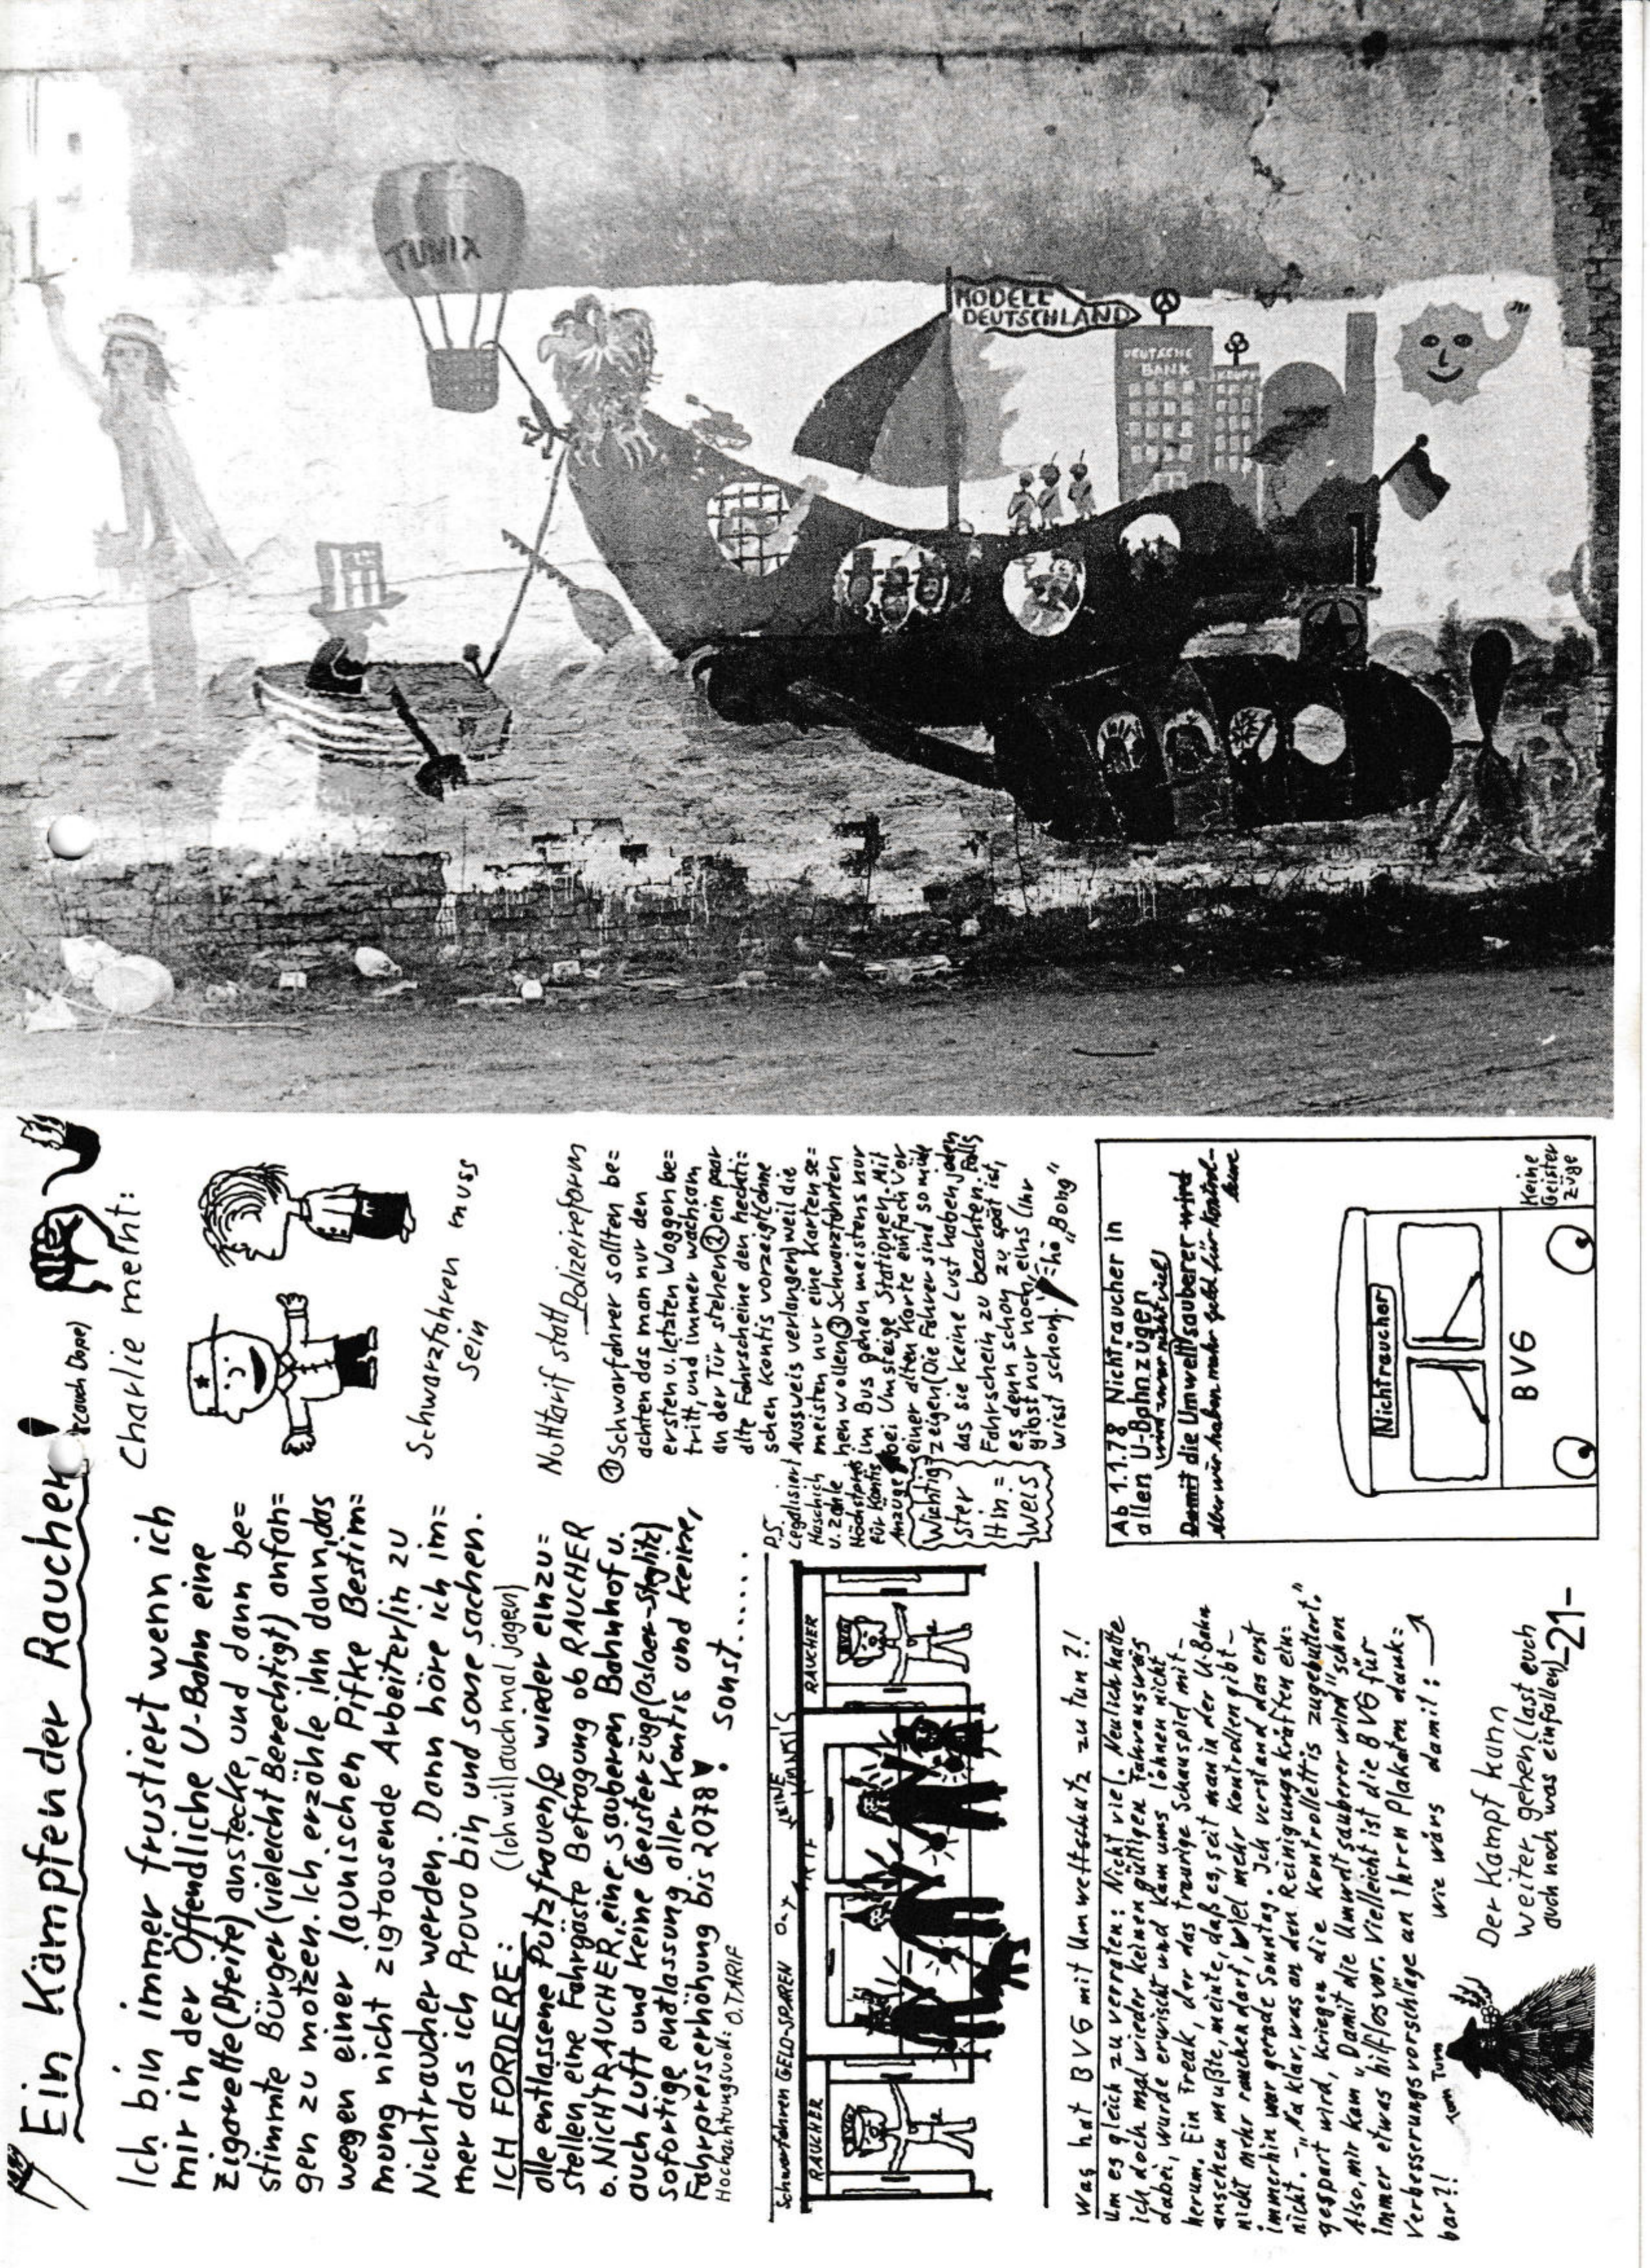 TUNIX
MODELL
DEUTSCHLAND
DEUTSCHE
BANK
KRUPP
Ein Kämpfender Raucher!
(auch Dope)
Ich bin immer frustiert wenn ich
mir in der Öffendliche U-Bahn eine
Zigarette (Pfeife) anstecke, und dann be=
stimmte Bürger (vieleicht Berechtigt) anfan=
gen zu motzen. Ich erzähle ihn dann, das
wegen einer launischen Pifke Bestim=
mung nicht zigtausende Arbeiter/in zu
Nichtraucher werden. Dann höre ich im=
mer das ich Provo bin und sone sachen.
ICH FORDERE: (Ich will auch mal jagen)
alle entlassene Putzfrauen/ wieder einzu=
stellen, eine Fahrgäste Befragung ob RAUCHER
o. NICHTRAUCHER, eine sauberen Bahnhof u.
auch Luft und keine Geisterzüge (Osloer-Stglitz)
sofortige endlassung aller Kontis und keine,
Fahrpreiserhöhung bis 2078! sonst.....
Hochachtungsvoll: O.TARIF
Charlie meint:
Schwarzfahren muss
sein
Nulltarif statt Polizeireform
① Schwarfahrer sollten be=
achten das man nur den
ersten u. letzten Waggon be=
tritt, und immer wachsam
an der Tür stehen ② ein paar
alte Fahrscheine den hecti=
schen Kontis vorzeigt (ohne
Aussweis verlangen) weil die
meisten nur eine Karten se=
hen wollen ③ Schwarzfahrten
im Bus gehen meistens nur
bei Umsteige Stationen. Mit
einer alten Karte einfach vor
zeigen (Die Fahrer sind so müde
das sie keine Lust haben jeden
Fahrschein zu beachten. Falls
es denn schon zu spät ist,
gibst nur noch eins (Ihr
wisst schon)
"Bong"
P.S.
Legalisiert
Haschich
u. zahle
Höchstpreis
für Kontis
Anzüge
Wichtig=
ster
Hin=
weis
Schwarzfahren GELD-SPAREN
KEINE
RAUCHER
RAUCHER
Was hat BVG mit Umweltschutz zu tun?!
Um es gleich zu verraten: Nicht viel. Neulich hatte
ich doch mal wieder keinen gültigen Fahrausweis
dabei, wurde erwischt und kam ums löhnen nicht
herum. Ein Freak, der das traurige Schauspiel mit-
ansehen mußte, meinte, daß es, seit man in der U-Bahn
nicht mehr rauchen darf, viel mehr Kontrollen gibt -
immerhin war gerade Sonntag. Ich verstand das erst
nicht. - „Na klar, was an den Reinigungskräften ein=
gespart wird, kriegen die Kontrollettis zugebuttert."
Also, mir kam „Damit die Umwelt sauberer wird" schon
immer etwas hilflos vor. Vielleicht ist die BVG für
Verbesserungsvorschläge an Ihren Plakaten dank=
bar?! wie wärs damit:
Tom Turm
Der Kampf kann
weiter gehen (last euch
auch noch was einfallen)
-21-
Ab 1.1.78 Nichtraucher in
allen U-Bahnzügen
wird zwar nicht viel
Damit die Umwelt sauberer wird
Aber wir haben mehr Geld für Kontrol-
leure
Nichtraucher
BVG
Keine
Geister
züge